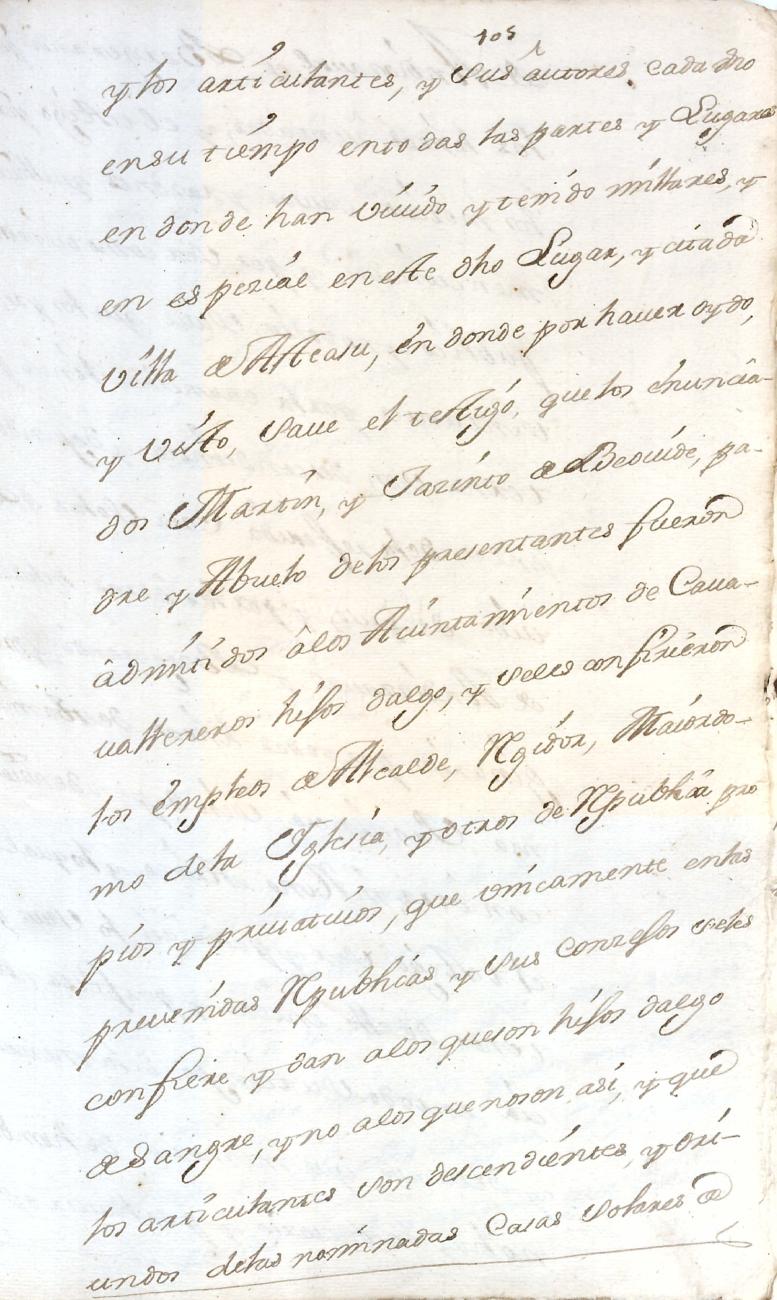 105
y los articulantes, y sus autores cada uno
en su tiempo en todas las partes y Lugares
en donde han viuido y tenido millares, y
en espezial en este dho Lugar, y citada
villa de Asteasu, en donde por hauer oydo,
y visto, saue el testigo, que los enuncia-
dos Martin, y Jazinto de Beouide, pa-
dre y Abuelo delos presentantes fueron
admitidos alos Aiuntamientos de Caua-
vallereros hijos dalgo, y seles confirieron
los empleos de Alcalde, Rgidor, Maiordo-
mo dela Yglesia, y otros de Rpublica pro
pios y priuatiuos, que vnicamente enlas
preuenidas Rpublicas y sus conzejos seles
confiere y dan alos que son hijos dalgo
de sangre, y no alos que no son asi, y que
los articulantes son descendientes, y ori-
undos delas nominadas Casas Solares de